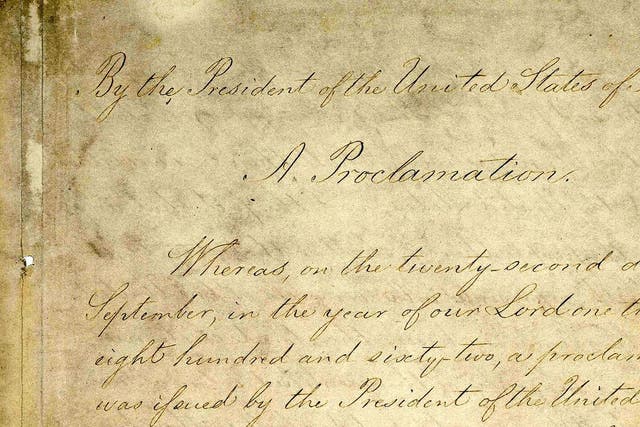 By the President of the United States of
A Proclamation.
Whereas, on the twenty-second d
September, in the year of our Lord one th
eight hundred and sixty-two, a proclam
was issued by the President of the United